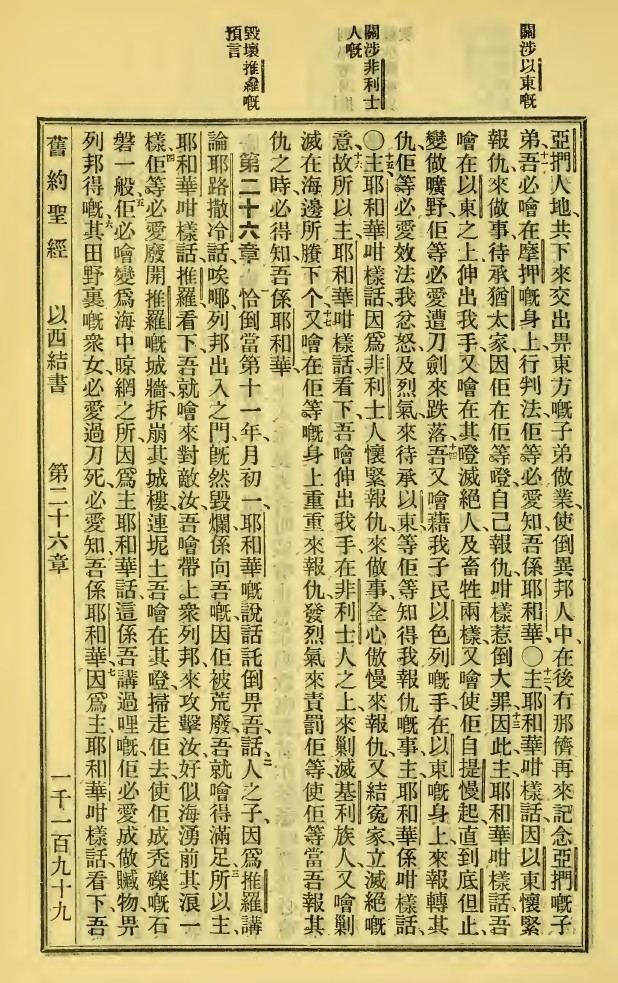 關涉以東嘅
關涉非利士
人嘅
毀壞推羅嘅
預言
亞捫人地共下來交出畀東方嘅子弟做業、使倒異邦人中、在後冇那儕再來記念亞捫嘅子
弟、十一吾必噲在摩押嘅身上行判法、佢等必愛知吾係耶和華、〇十二主耶和華咁樣話、因以東懷緊
報仇來做事、待承猶太家、因佢在佢等噔自己報仇、咁樣惹倒大罪、十三因此主耶和華咁樣話、吾
噲在以東之上伸出我手、又噲在其噔滅絕人及畜牲兩樣、又噲使佢自提慢起直到底但止、
變做曠野、佢等必愛遭刀劍來跌落、十四吾又噲藉我子民以色列嘅手、在以東嘅身上來報轉其
仇、佢等必愛效法我忿怒及烈氣來待承以東等、佢等知得我報仇嘅事、主耶和華係咁樣話、
〇十五主耶和華咁樣話、因爲非利士人懷緊報仇來做事、全心傲慢來報仇、又結寃家立滅絕嘅
意、十六故所以主耶和華咁樣話、看下、吾噲伸出我手在非利士人之上、來剿滅基利族人、又噲剿
滅在海邊所賸下个、十七又噲在佢等嘅身上重重來報仇、發烈氣來責罰佢等、使佢等當吾報其
仇之時、必得知吾係耶和華、
第二十六章 一恰倒當第十一年月初一、耶和華嘅說話託倒畀吾話、二人之子、因爲推羅講
論耶路撒冷話、唉㖿、列邦出入之門、旣然毀爛、係向吾嘅、因佢被荒廢、吾就噲得滿足、三所以主
耶和華咁樣話、推羅看下、吾就噲來對敵汝、吾噲帶上衆列邦來攻擊汝、好似海湧前其浪一
樣、四佢等必愛廢開推羅嘅城牆、拆崩其城樓、連坭土吾噲在其噔掃走佢去、使佢成禿礫嘅石
磐一般、五佢必噲變爲海中晾網之所、因爲主耶和華話、這係吾講過哩嘅、佢必愛成做贓物畀
列邦得嘅、六其田野裏嘅衆女必愛過刀死、必愛知吾係耶和華、七因爲主耶和華咁樣話、看下、吾
舊約聖經 以西結書 第二十六章 一千一百九十九